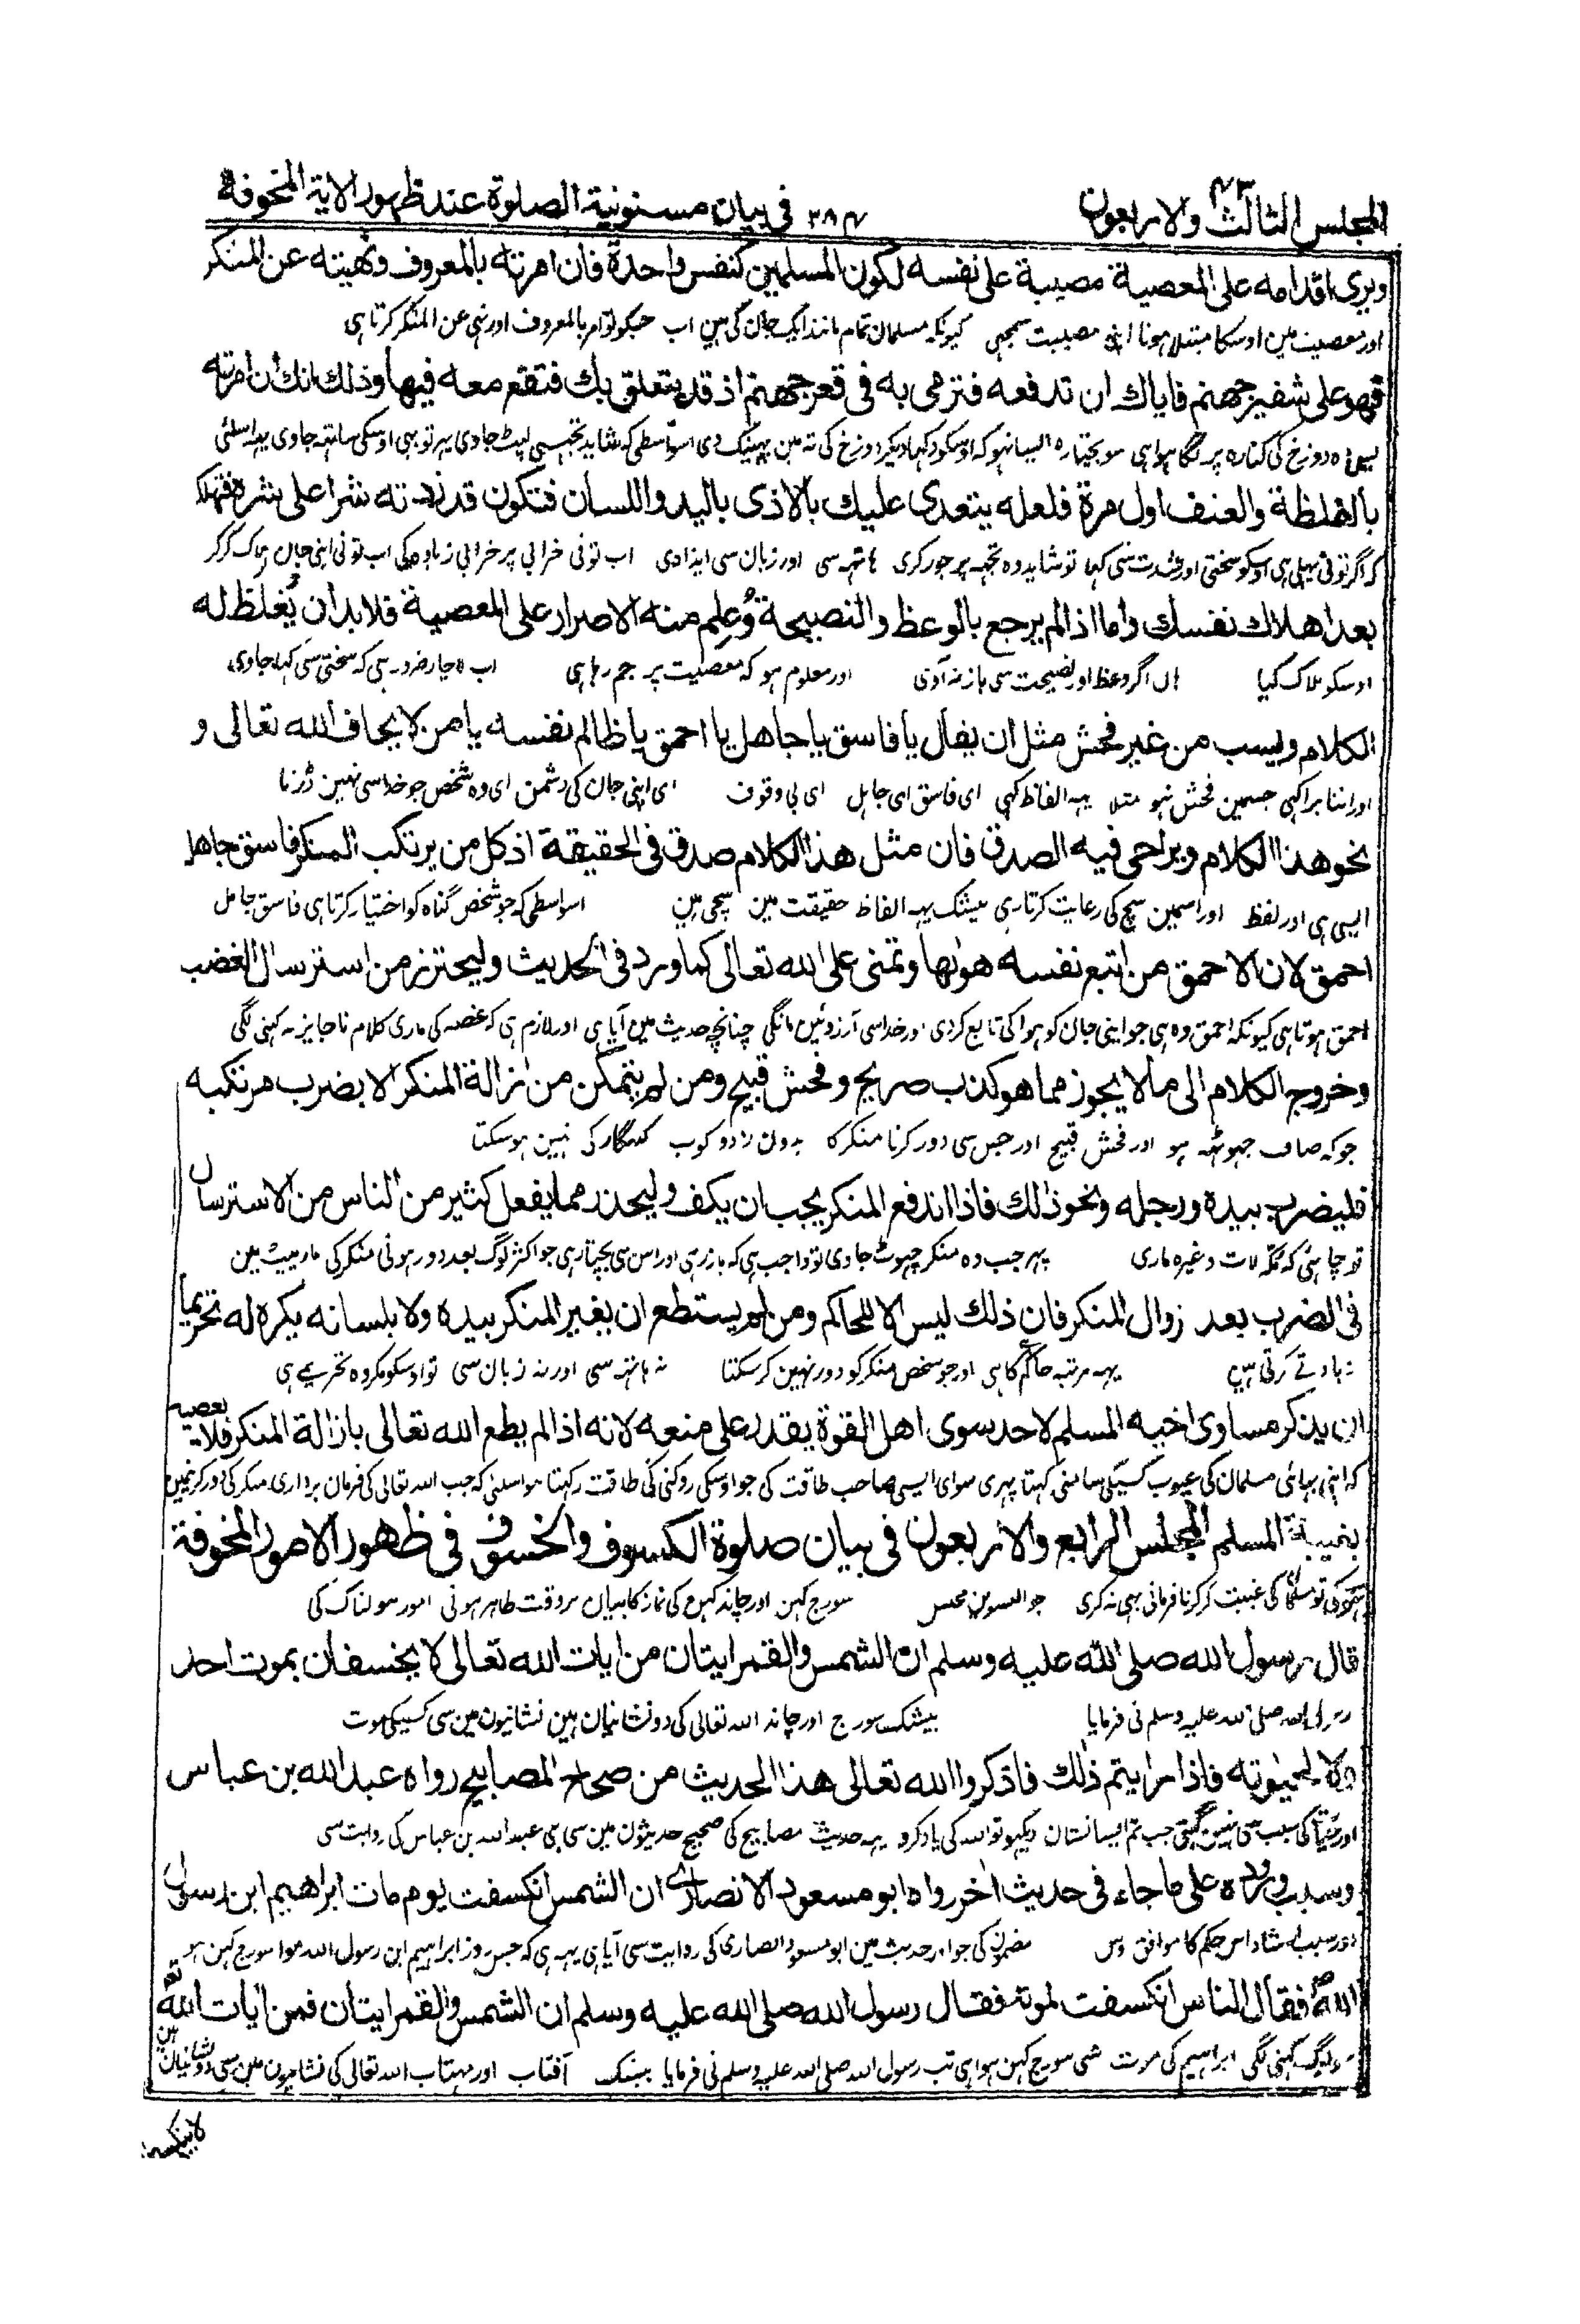 المجلس الثالث والاربعون ۴۳ ۳۸۴ فی بیان مسنونیة الصلوة عند ظهور الایة المخوفة
ویری اقدامه علی المعصیة مصیبة علی نفسه لکون المسلمین کنفس واحدة فان امرته بالمعروف ونهیته عن المنکر
اور معصیت مین اوسکا مبتلا ہونا اپنی مصیبت سمجہی کیونکہ مسلمان تمام مانند ایک جان کی ہین اب جبکو تو امر بالمعروف اور نہی عن المنکر کرتا ہی
فهو علی شفیر جهنم فایاك ان تدفعه فترمی به فی قعر جهنم اذ قد یتعلق بك فتقع معه فیها وذلك انك ان امرته
دوزخ کی کنارہ پر لگا ہوا ہی سو بچیتا رہ ایسا نہو کہ اوسکو دکہا دیکر دوزخ کی تہ مین پہینک دی اسواسطی کہ شاید تجہسی لپٹ جاوی پہر تو بہی اوسکی ساتہہ جاوی یہہ اسلئی
بالغلظة والعنف اول مرة فلعله یتعدی علیك بالاذی بالید واللسان فتکون قد زدته شرا علی شره فتهلکه
کہ اگر تو نی پہلی ہی اوسکو سختی اور شدت سی کہا تو شاید وہ تجہہ پر جور کری ہاتہہ سی اور زبان سی ایذا دی اب تو نی خرابی پر خرابی زیادہ کی اب تو نی اپنی جان ہلاک کر کر
بعد اهلاك نفسك واما اذا لم یرجع بالوعظ والنصیحة وعلم منه الاصرار علی المعصیة فلا بد ان یغلظ له
اوسکو ہلاک کیا ہان اگر وعظ اور نصیحت سی باز نہ آوی اور معلوم ہو کہ معصیت پر جم رہا ہی اب لاچار ضرور ہی کہ سختی سی کہا جاوی
الکلام ویسب من غیر فحش مثل ان یقال یا فاسق یا جاهل یا احمق یا ظالم نفسه یا من لا یخاف الله تعالی و
اور اتنا برا کہی جسمین فحش نہو مثلا یہہ الفاظ کہی ای فاسق ای جاہل ای بی وقوف ای اپنی جان کی دشمن ای وہ شخص جو خدا سی نہین ڈرتا
نحو هذا الکلام ویراعی فیه الصدق فان مثل هذا الکلام صدق فی الحقیقة اذ کل من یرتکب المنکر فاسق جاهل
ایسی ہی اور لفظ اور اسمین سچ کی رعایت کرتا رہی بیشک یہہ الفاظ حقیقت مین سچی ہین اسواسطی کہ جو شخص گناہ کو اختیار کرتا ہی فاسق جاہل
احمق لان الاحمق من اتبع نفسه هوٰیها وتمنی علی الله تعالی کما ورد فی الحدیث ولیحترز من استرسال الغضب
احمق ہوتا ہی کیونکہ احمق وہ ہی جو اپنی جان کو ہوا کی تابع کر دی اور خدا سی آرزوئین مانگی چنانچہ حدیث مین آیا ہی اور لازم ہی کہ غصہ کی ماری کلام ناجایز نہ کہنی لگی
وخروج الکلام الی ما لا یجوز مما هو کذب صریح وفحش قبیح ومن لم یتمکن من ازالة المنکر الا بضرب مرتکبه
جو کہ صاف جہوٹہہ ہو اور فحش قبیح اور جس سی دور کرنا منکر کا بدون زدوکوب گنہگار کی نہین ہو سکتا
فلیضرب بیده ورجله ونحو ذالك فاذا اندفع المنکر یجب ان یکف ولیحذر مما یفعل کثیر من الناس من الاسترسال
تو چاہئی کہ مکہ لات وغیرہ ماری پہر جب وہ منکر چہوٹ جاوی تو واجب ہی کہ باز رہی اور اس سی بچتا رہی جو اکثر لوگ بعد دور ہونی منکر کی مار پیٹ مین
فی الضرب بعد زوال المنکر فان ذلك لیس الا للحاکم ومن لم یستطع ان یغیر المنکر بیده ولا بلسانه یکره له تحریما
زیادتی کرتی ہین یہہ مرتبہ حاکم کا ہی اور جو شخص منکر کو دور نہین کر سکتا نہ ہاتہہ سی اور نہ زبان سی تو اوسکو مکروہ تحریمی ہی
ان یذکر مساوی اخیه المسلم لاحد سوی اهل القوة یقدر علی منعه لانه اذا لم یطع الله تعالی بازالة المنکر فلا یعصیه
کہ اپنی بہائی مسلمان کی عیوب کسیکی سامنی کہتا پہری سوای ایسی صاحب طاقت کی جو اوسکی روکنی کی طاقت رکہتا ہو اسلئی کہ جب اللہ تعالی کی فرمان برداری منکر کی دور کر نہین
بغیبة المسلم المجلس الرابع والاربعون فی بیان صلوة الکسوف والخسوف فی ظهور الامور المخوفة
سکی تو مسلمان کی غیبت کر کر نافرمانی بہی نہ کری چوالیسوین مجلس سورج گہن اور چاند گہن کی نماز کا بیان ہر وقت ظاہر ہونی امور ہولناک کی
قال رسول الله صلی الله علیه وسلم ان الشمس والقمر ایتان من ایات الله تعالی لا یخسفان بموت احد
رسول اللہ صلی اللہ علیہ وسلم نی فرمایا بیشک سورج اور چاند اللہ تعالی کی دو نشانیان ہین نشانیون مین سی کسیکی موت
ولا لحیٰوته فاذا رایتم ذلك فاذکروا الله تعالی هذا الحدیث من صحاح المصابیح رواه عبد الله بن عباس
اور حیات کی سبب سی نہین گہتی جب تم ایسا نشان دیکہو تو اللہ کی یاد کرو یہہ حدیث مصابیح کی صحیح حدیثون مین سی ہی عبد اللہ بن عباس کی روایت سی
وسبب وروده علی ما جاء فی حدیث اخر رواه ابو مسعود الانصاری ان الشمس انکسفت یوم مات ابراهیم ابن رسول
اور سبب ارشاد اس حکم کا موافق اوس مضمون کی جو اور حدیث مین ابو مسعود انصاری کی روایت سی آیا ہی یہہ ہی کہ جس روز ابراہیم ابن رسول اللہ موا سورج گہن ہو
الله فقال الناس انکسفت لموته فقال رسول الله صلی الله علیه وسلم ان الشمس والقمر ایتان من اٰیات الله تع
لوگ کہنی لگی ابراہیم کی موت سی سورج گہن ہوا ہی تب رسول اللہ صلی اللہ علیہ وسلم نی فرمایا بیشک آفتاب اور مہتاب اللہ تعالی کی نشانیون مین سی دو نشانیان ہین